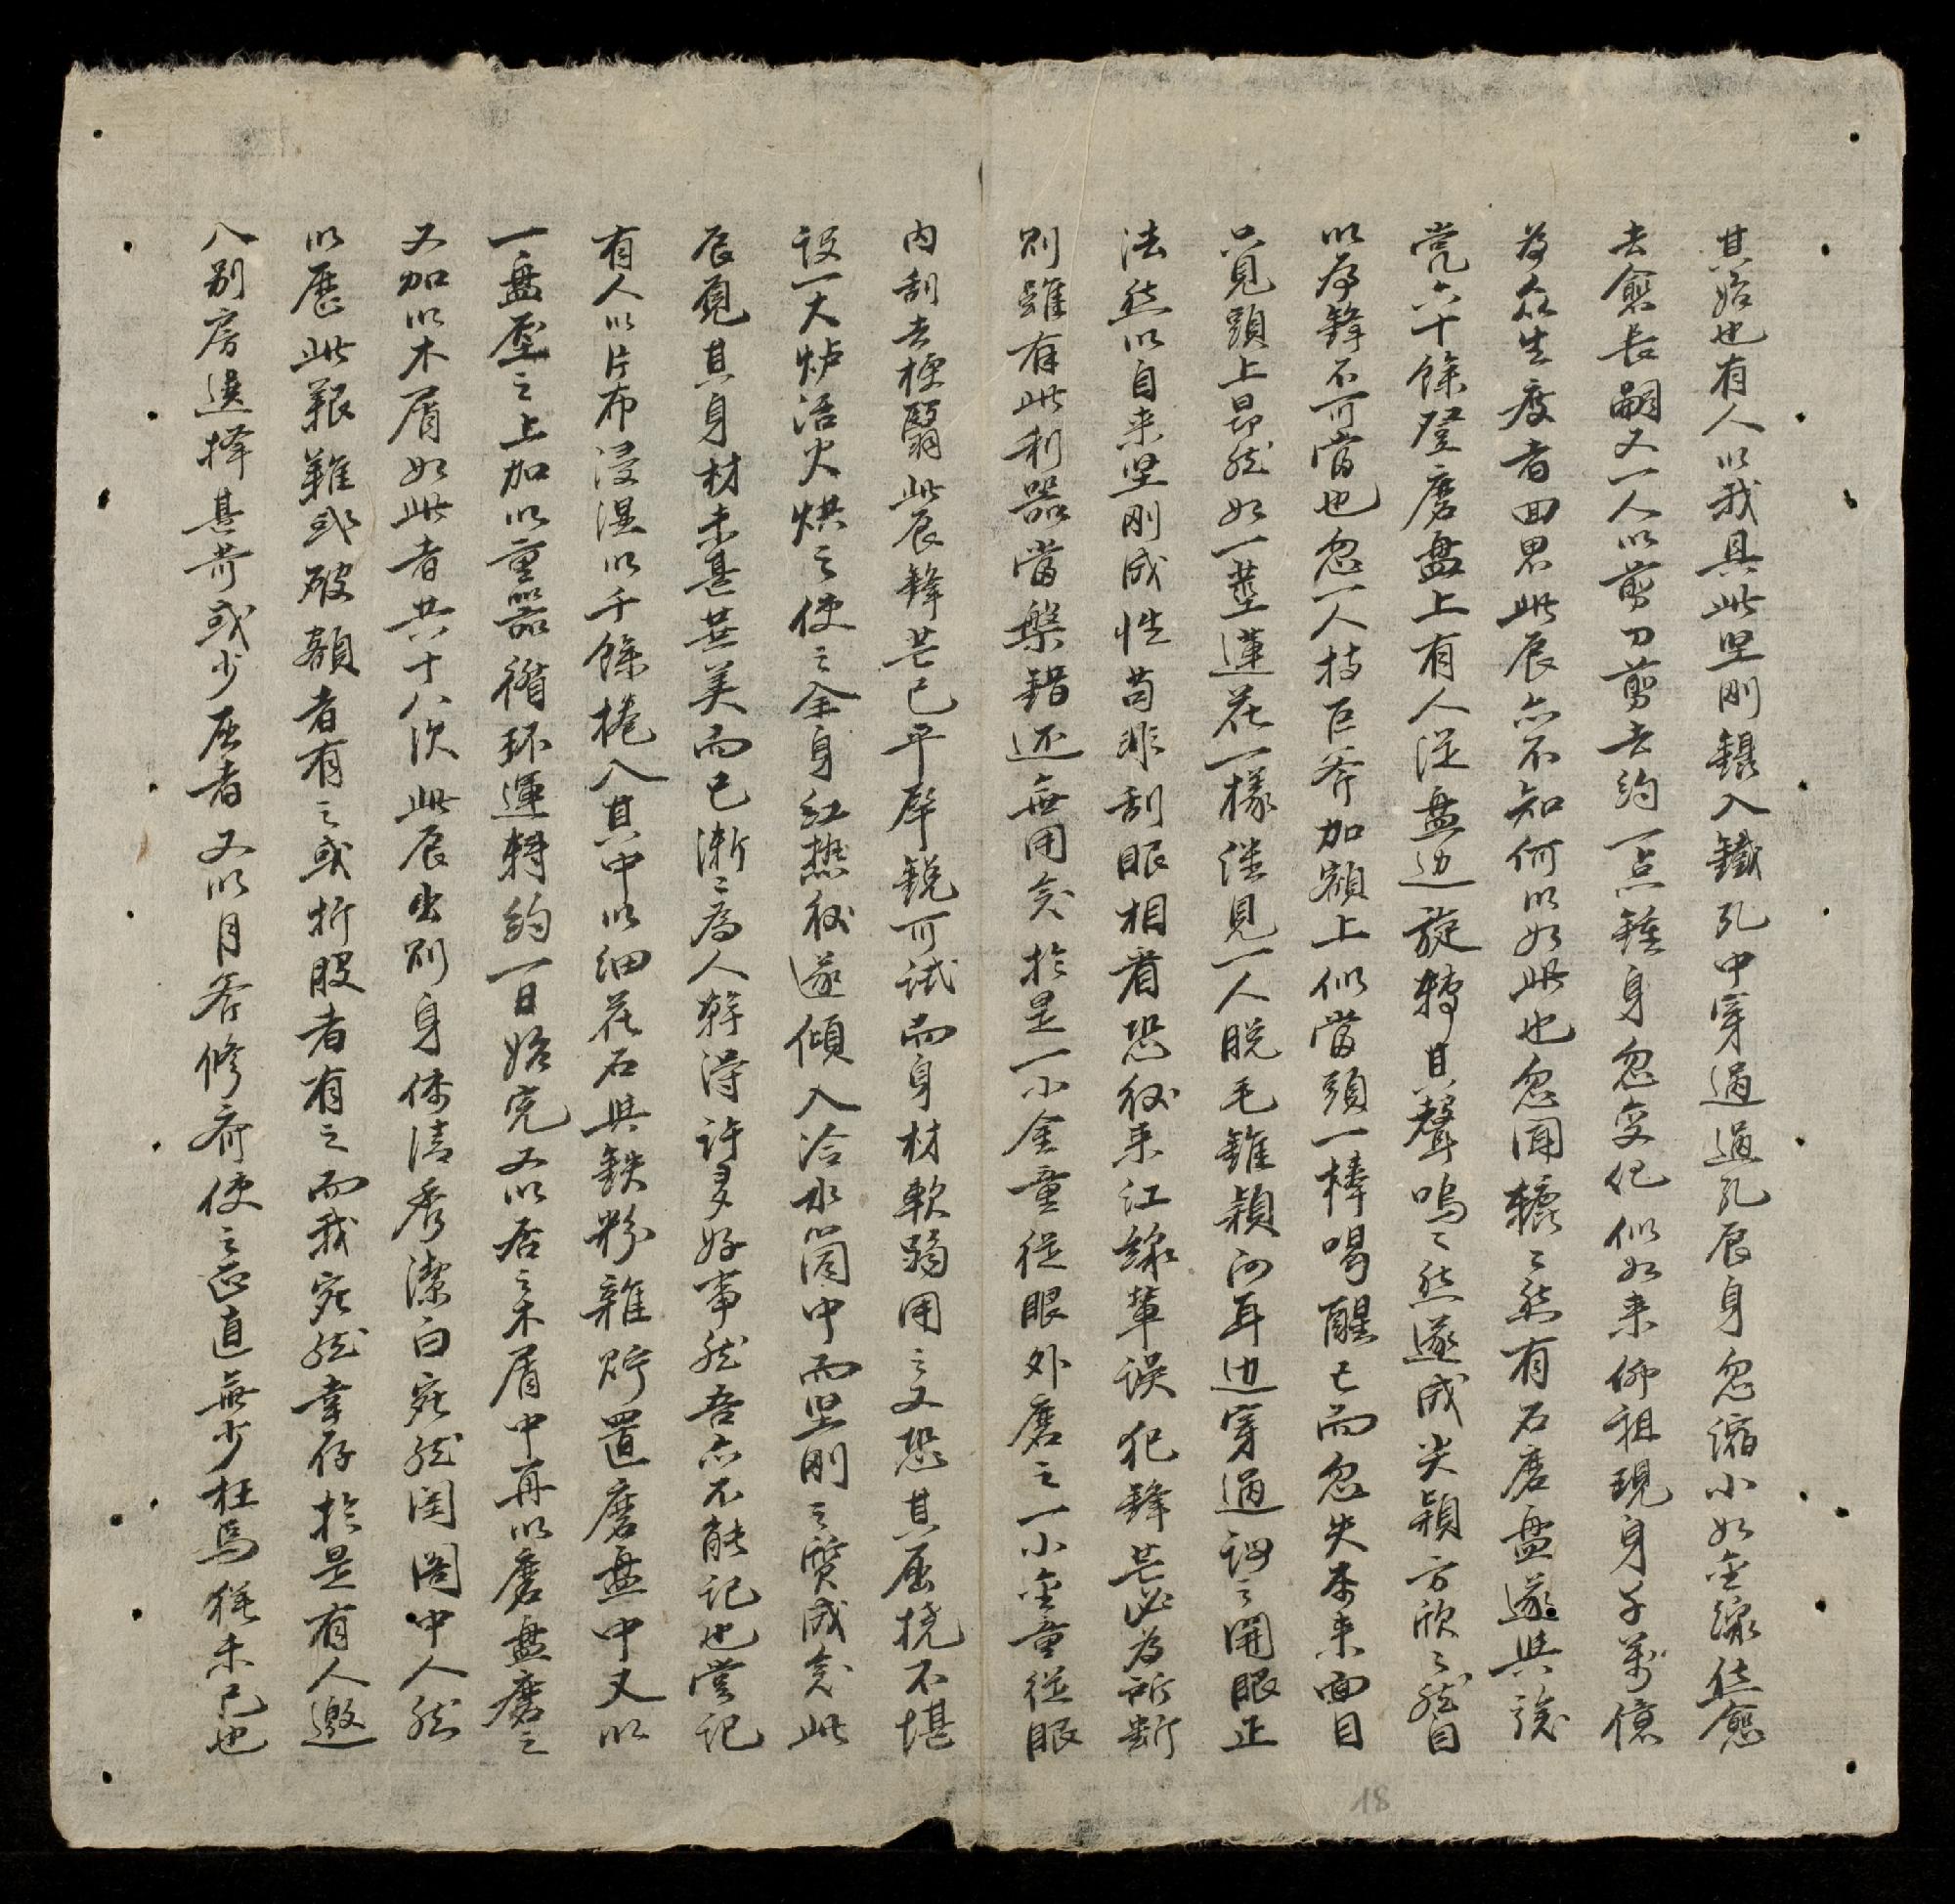 其始也有人以我具此坚刚鑷入鐵孔中穿過過孔辰身忽縮小如金線佐愈
去愈長嗣又一人以剪刀剪去約一点鍾身忽变化似如来仰祖現身千萬億
為众生度者回思此辰亦不知何以如此也忽闻轆〻然有石磨盤遂與該
凳六十餘登磨盤上有人從盤边旋轉其聲嗚〻然遂成尖穎方欣〻然自
以為鋒不可當也忽一人持巨斧加額上似當頭一棒喝醒已而忽失本来面目
只見頭上昂然如一莖蓮花一樣僅見一人脱毛錐穎向耳边穿過謂之開眼正
法然以自来坚刚成性苟非刮眼相看恐後来江線輩误犯鋒芒必为所断
則雖有此利器當盤錯还無用矣於是一小金童從眼外磨之一小金童從眼
内刮去梗翳此辰鋒芒已平犀銳可試而身材軟弱用之又恐其屈撓不堪
设一大炉活火烘之使之全身紅热後遂傾入冷水筒中而坚刚之質成矣此
辰覓其身材未甚甚美而已漸〻為人幹得許多好事然吾亦不能記也嘗記
有人以片布浸湿以千餘捲入其中以细花石與鉄粉雜貯置磨盤中又以
一盤壓之上加以重器循环運轉約一日始完又以居之木屑中再以磨盤磨之
又加以木屑如此者共十八次此辰出則身体清秀潔白宛然闺阁中人然
以歷此艱難或破額者有之或折股者有之而我宛然幸存於是有人邀
入别房選擇甚苛或少屈者又以月斧修齐使之正直無少枉焉猶未已也
18